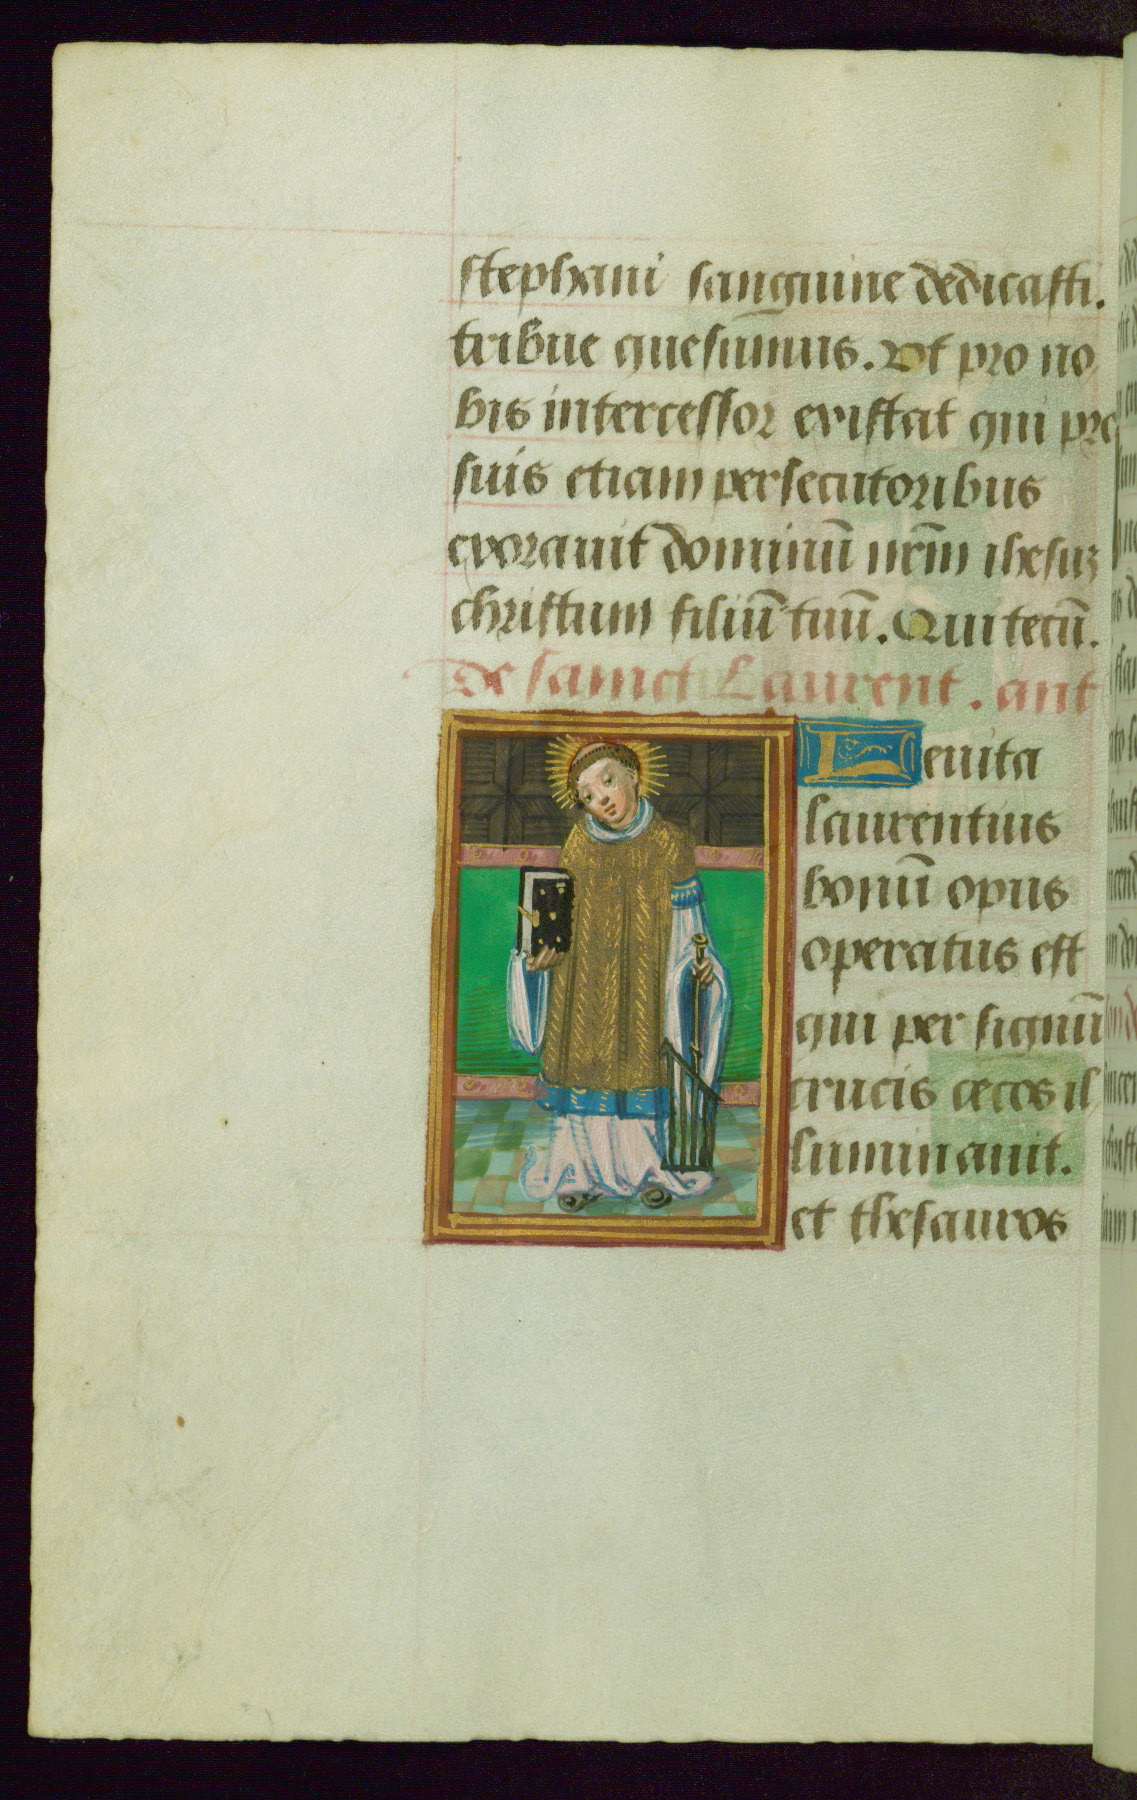 stephani sanguine dedicasti.
tribue quesumus. Ut pro no
bis intercessor existat qui pro
suis etiam persecutoribus
exorauit dominū nr̄m ihesuȝ
christum filiū tuū. Qui tecū.
de sanct Laurent. ant
Leuita
laurentius
bonū opus
operatus est
qui per signū
crucis cecos il
luminauit.
et thesauros